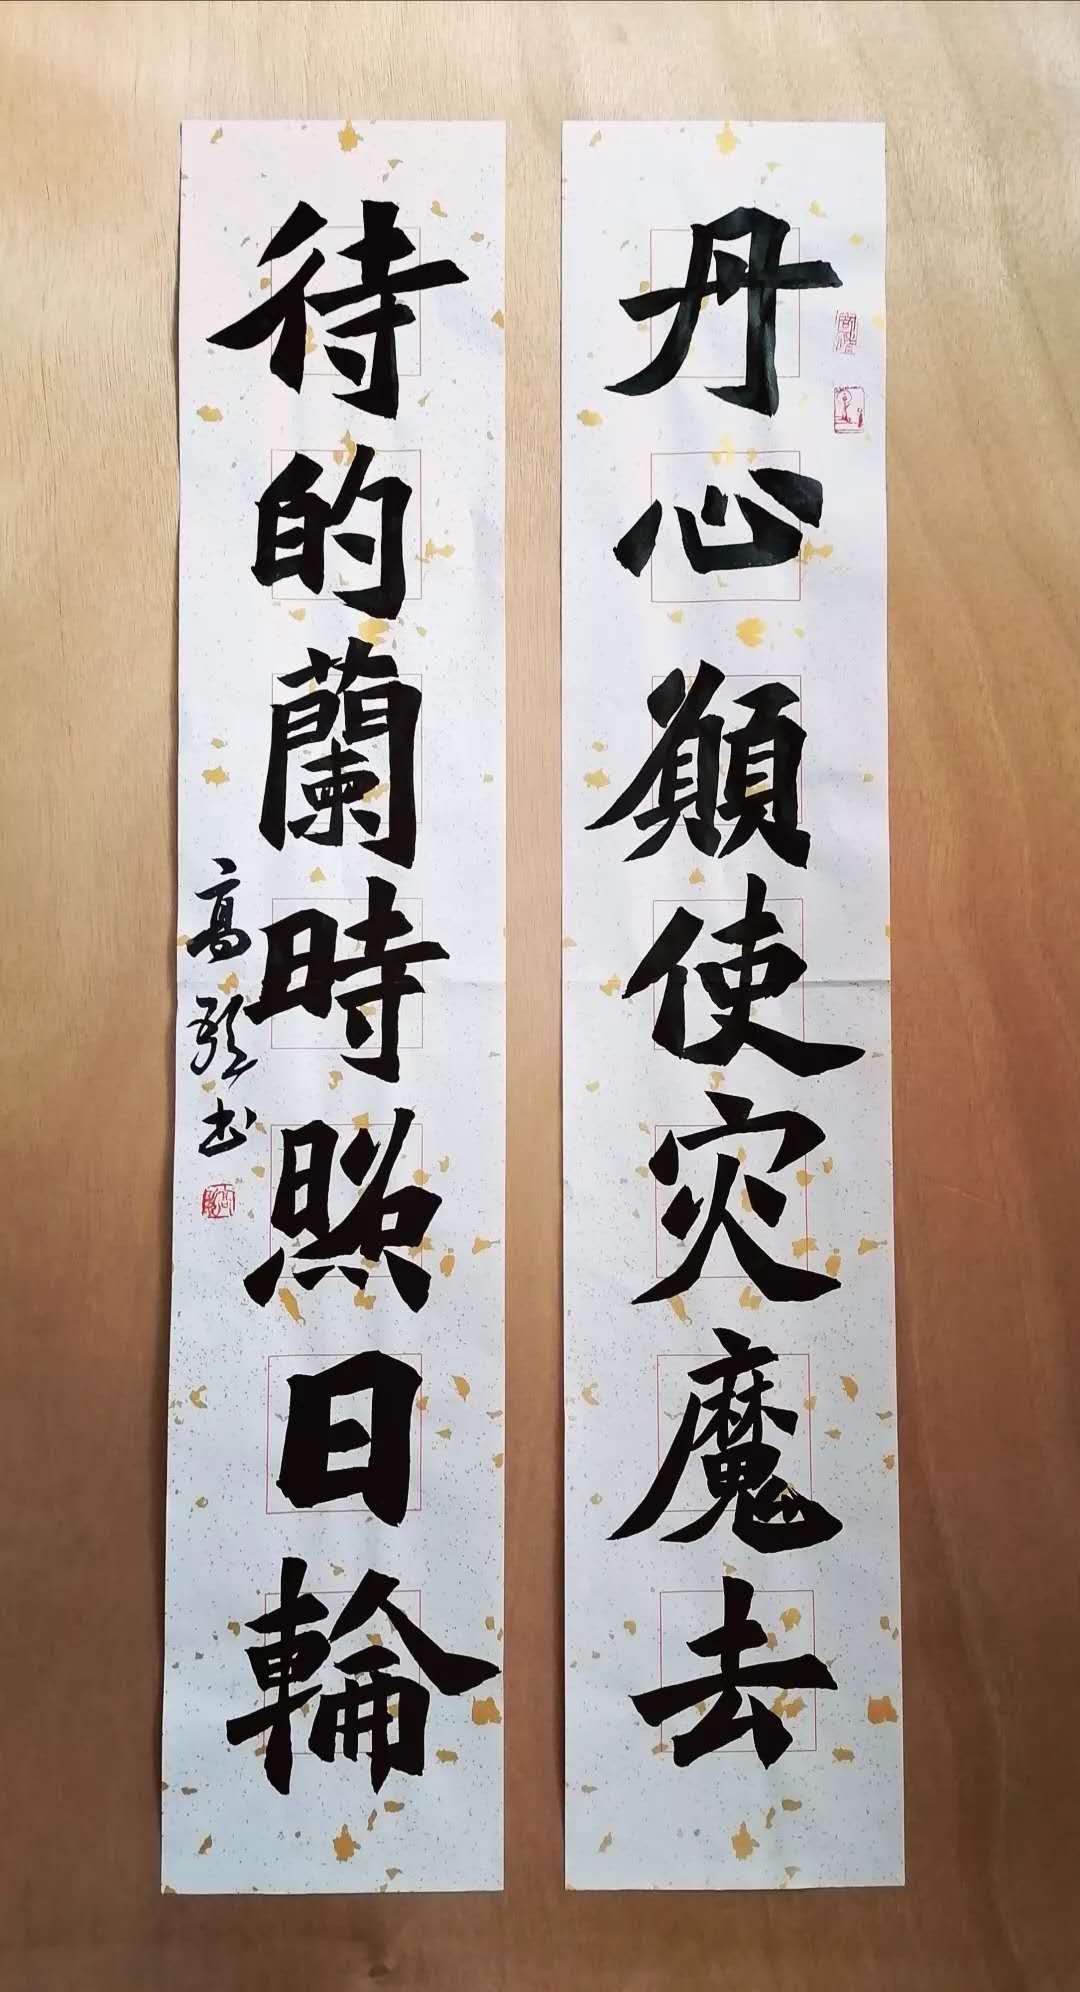 丹心願使灾魔去
待的蘭時照日輪
高歌书